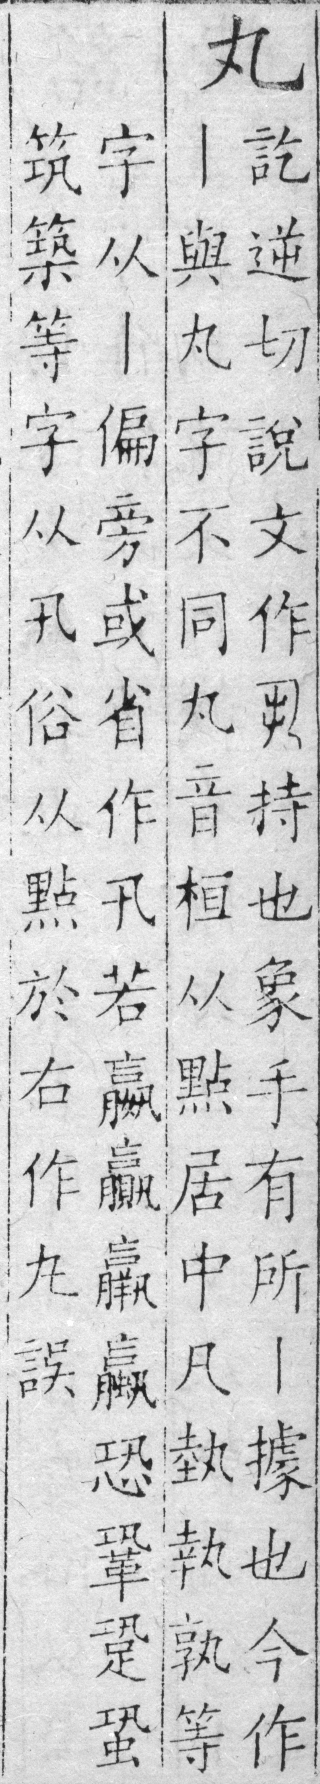 丸
訖逆切說文作丮持也象手有所丨據也今作
丨與丸字不同丸音桓从點居中凡埶執孰等
字从丨偏旁或省作卂若嬴贏羸蠃恐鞏跫蛩
筑築等字从卂俗从點於右作丸誤